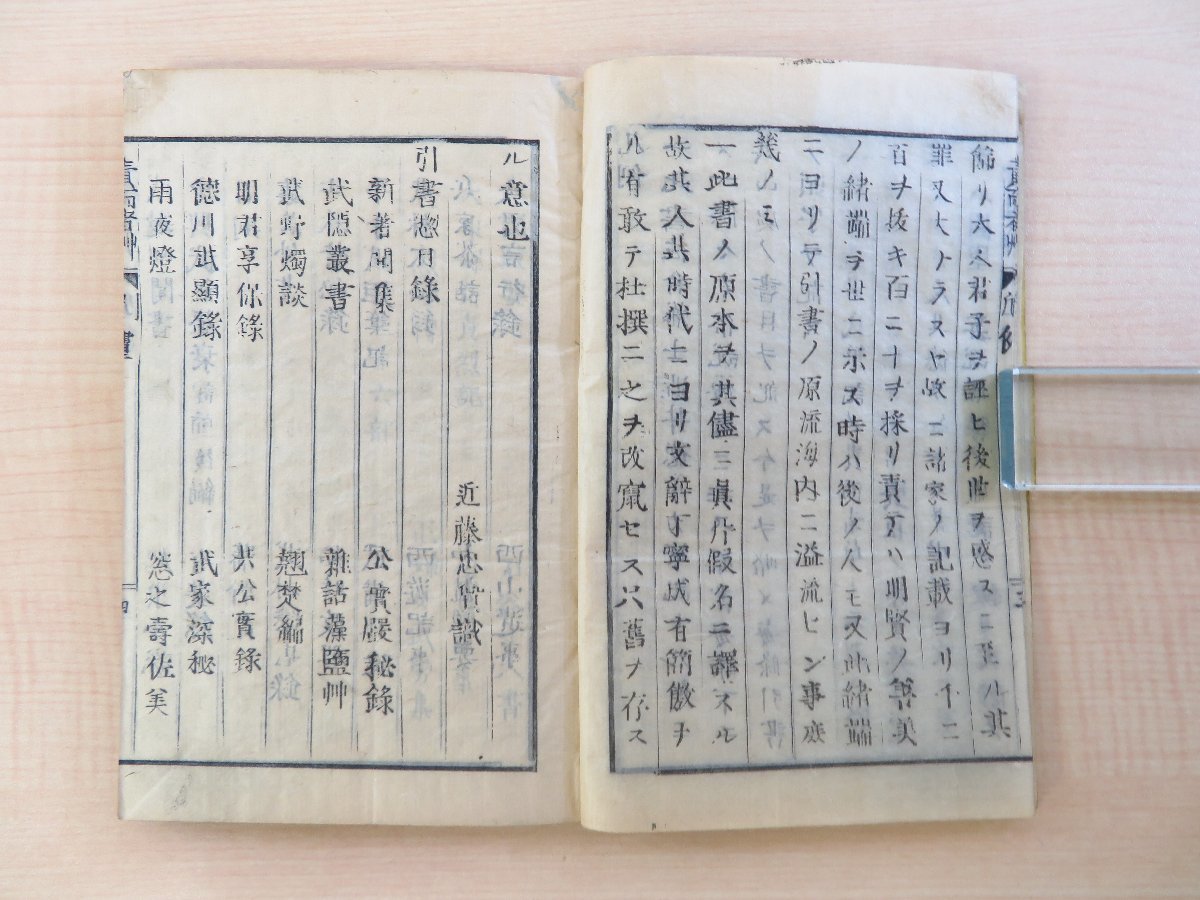 飾リ大ヘ君子ヲ誣ヒ後世ヲ惑スニ至ル其
罪又大ナラスヤ故ニ諸家ノ記載ヨリ千ニ
百ヲ抜キ百ニ十ヲ採リ責テハ明賢ノ善美
ノ緒端ヲ世ニ示ス時ハ後ノ人モ又此緒端
ニヨリテ引書ノ原流海内ニ溢流セン事庶
幾ノミ
一此書ノ原本ヲ其儘ニ眞片假名ニ譯スル
故其人其時代ニヨリ文辭丁寧成有簡傲ヲ
ル有敢テ杜撰ニ之ヲ改竄セス只舊ヲ存ス
ル意也
近藤忠質識
引書惣目錄
新著聞集 公實嚴秘錄
武隱叢書 雜話藻鹽艸
武野燭談 翹楚編
明君享保錄 共公實錄
德川武顯錄 武家深秘
雨夜燈 窓之壽佐美
四